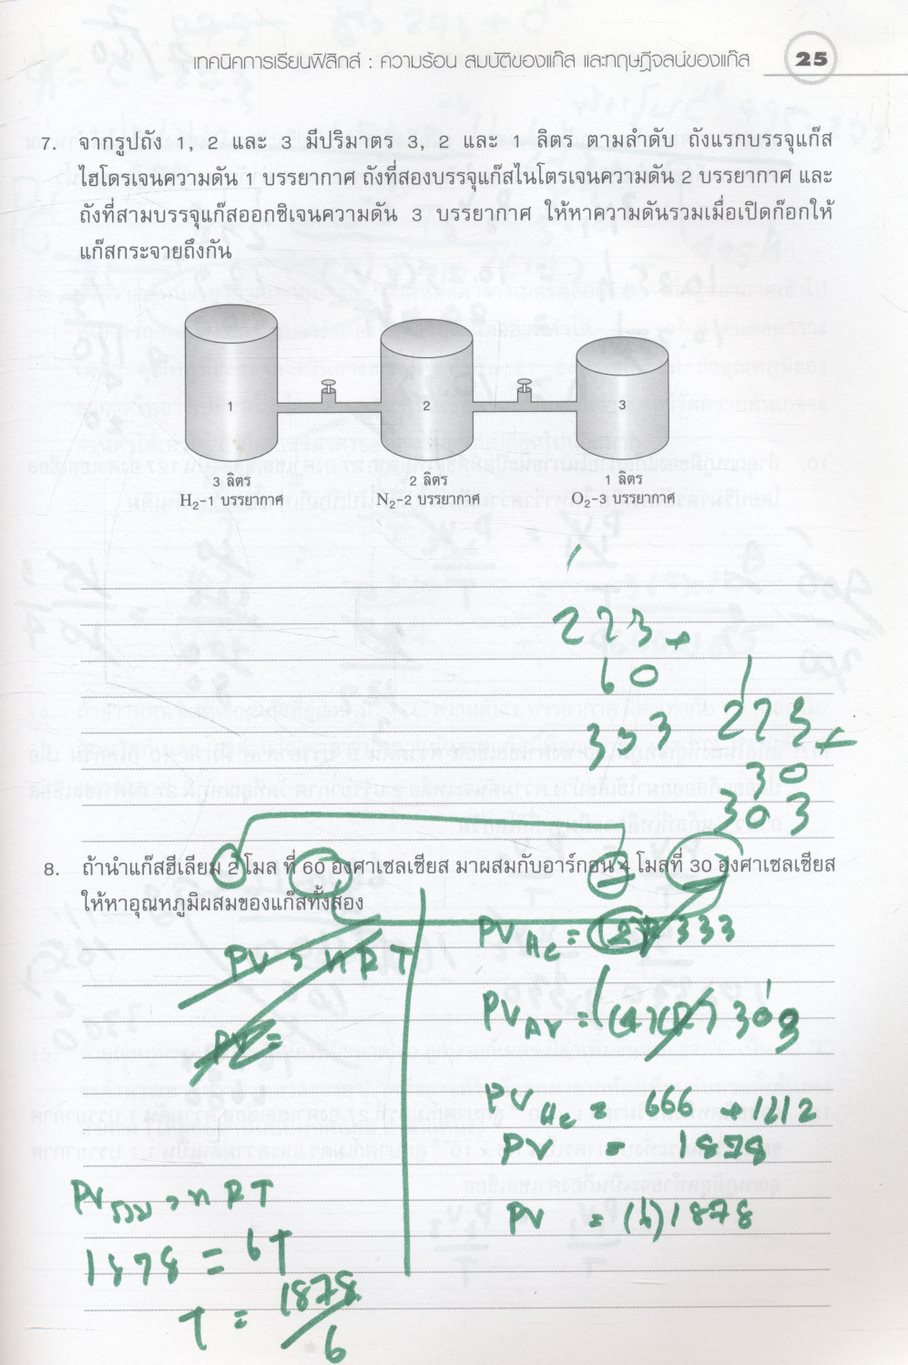 เทคนิคการเรียนฟิสิกส์ : ความร้อน สมบัติของแก๊ส และทฤษฎีจลน์ของแก๊ส 25
7. จากรูปถัง 1, 2 และ 3 มีปริมาตร 3, 2 และ ลิตร ตามลำดับ ถังแรกบรรจุแก๊ส
ไฮโดรเจนความดัน 1 บรรยากาศ ถังที่สองบรรจุแก๊สไนโตรเจนความดัน 2 บรรยากาศ และ
ถังที่สามบรรจุแก๊สออกซิเจนความดัน 3 บรรยากาศ ให้หาความดันรวมเมื่อเปิดก๊อกให้
แก๊สกระจายถึงกัน
1 2 3
3 ลิตร 2 ลิตร 1 ลิตร
H2-1 บรรยากาศ N2-2 บรรยากาศ O2-3 บรรยากาศ
1
273 +
60
333
1
273 +
30
303
8. ถ้านำแก๊สฮีเลียม 2 โมล ที่ 60 องศาเซลเซียส มาผสมกับอาร์กอน 4 โมลที่ 30 องศาเซลเซียส
ให้หาอุณหภูมิผสมของแก๊สทั้งสอง
PV = nRT
PV =
PV รวม = nRT
1878 = 6T
T = 1878/6
PV He = (2) 333
PV Ar = (4)(R) 303
PV He = 666 + 1212
PV = 1878
PV = (6) 1878